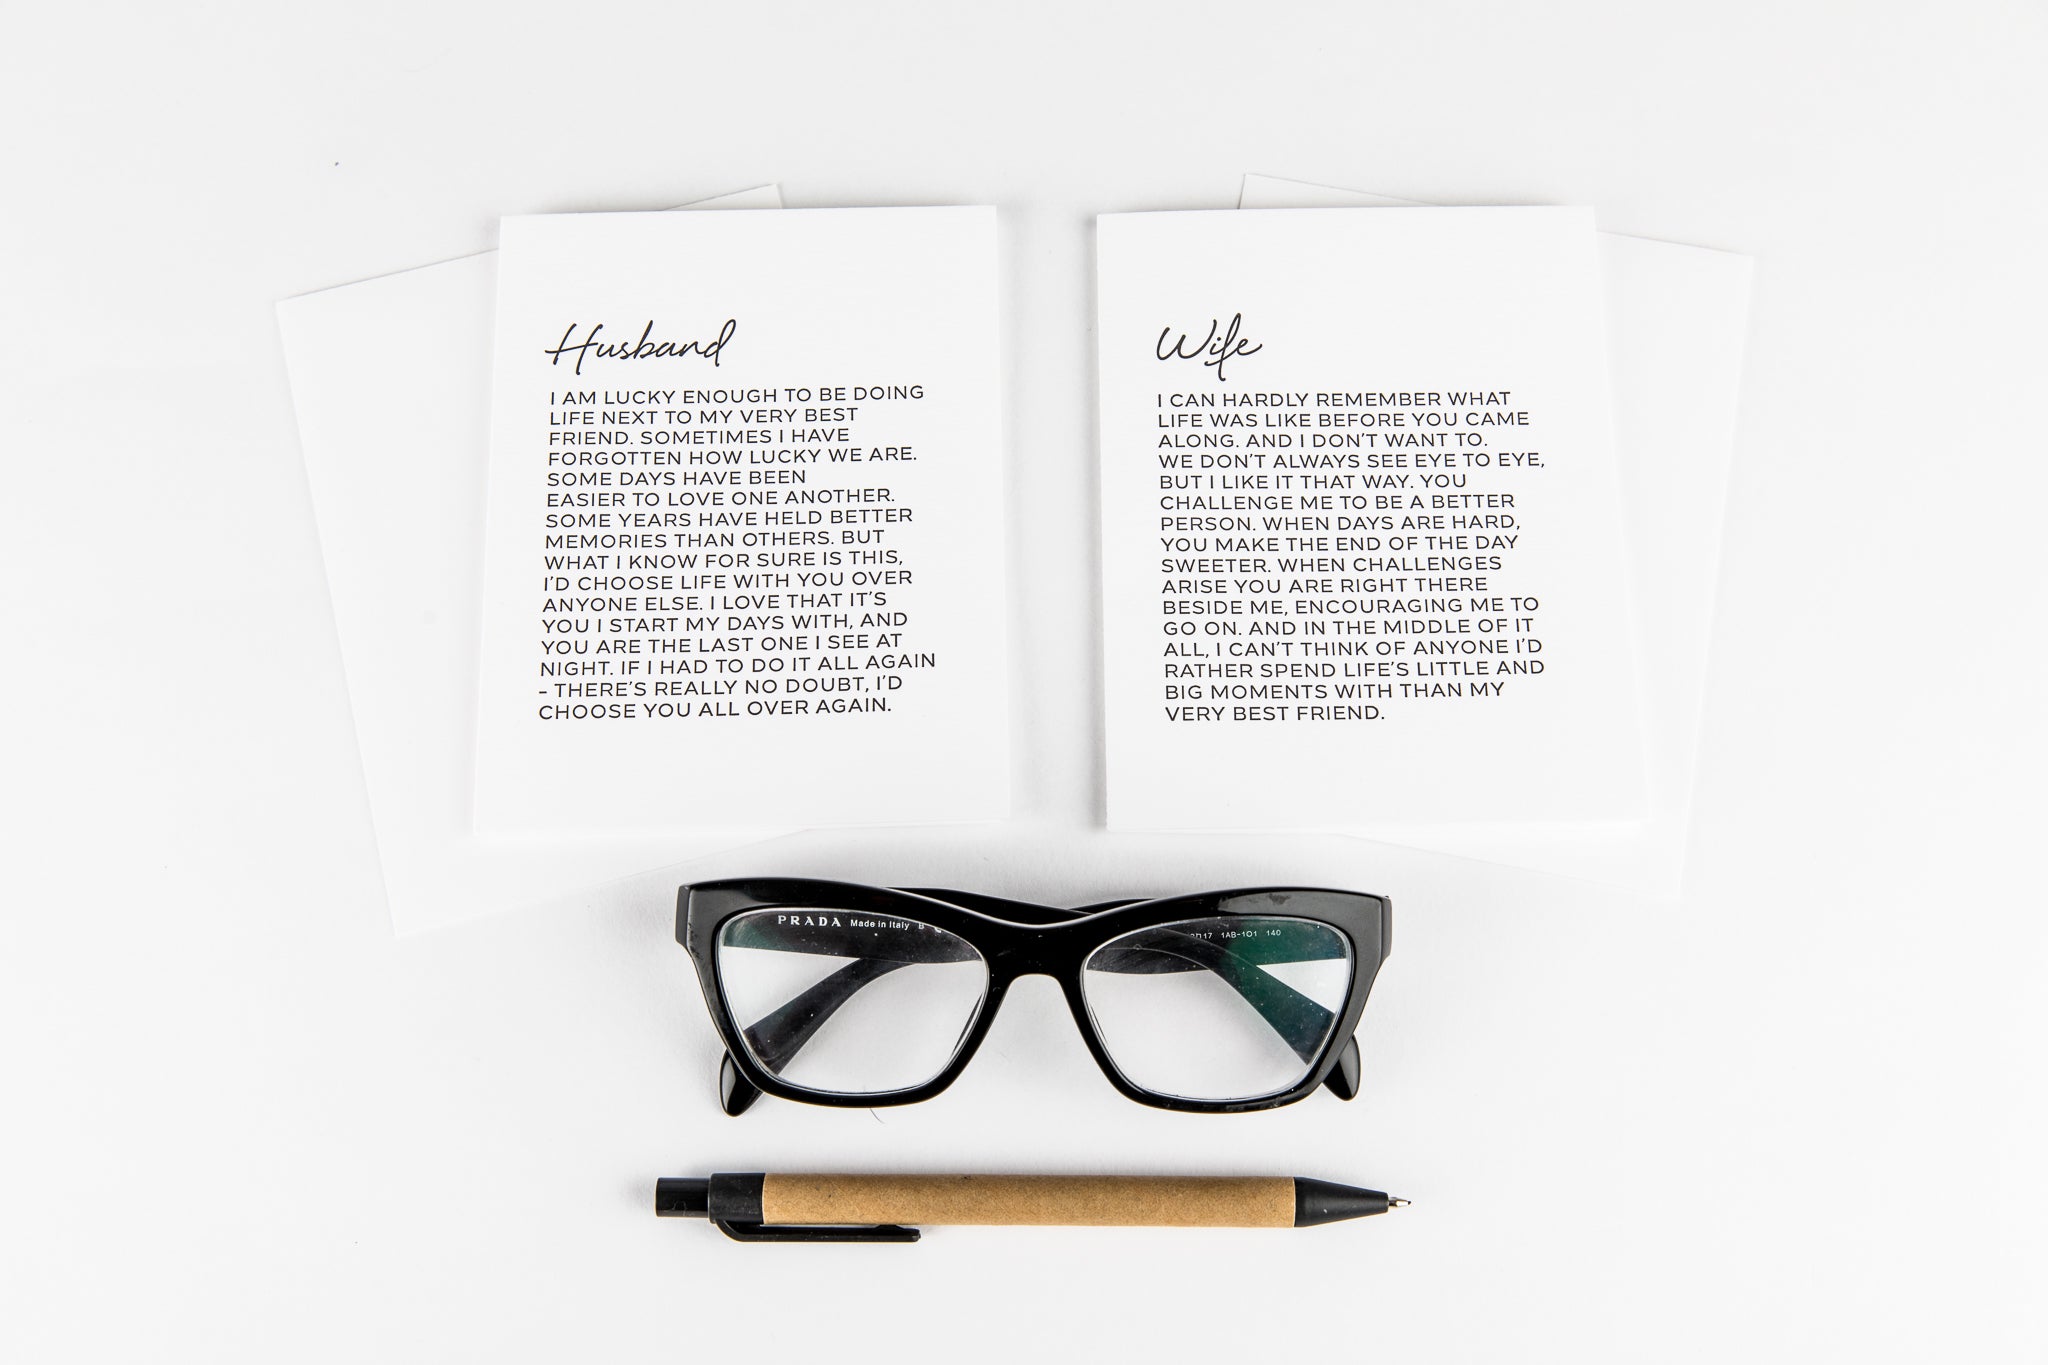 Husband
I AM LUCKY ENOUGH TO BE DOING
LIFE NEXT TO MY VERY BEST
FRIEND. SOMETIMES I HAVE
FORGOTTEN HOW LUCKY WE ARE.
SOME DAYS HAVE BEEN
EASIER TO LOVE ONE ANOTHER.
SOME YEARS HAVE HELD BETTER
MEMORIES THAN OTHERS. BUT
WHAT I KNOW FOR SURE IS THIS,
I'D CHOOSE LIFE WITH YOU OVER
ANYONE ELSE. I LOVE THAT IT'S
YOU I START MY DAYS WITH, AND
YOU ARE THE LAST ONE I SEE AT
NIGHT. IF I HAD TO DO IT ALL AGAIN
– THERE'S REALLY NO DOUBT, I'D
CHOOSE YOU ALL OVER AGAIN.
Wife
I CAN HARDLY REMEMBER WHAT
LIFE WAS LIKE BEFORE YOU CAME
ALONG. AND I DON'T WANT TO.
WE DON'T ALWAYS SEE EYE TO EYE,
BUT I LIKE IT THAT WAY. YOU
CHALLENGE ME TO BE A BETTER
PERSON. WHEN DAYS ARE HARD,
YOU MAKE THE END OF THE DAY
SWEETER. WHEN CHALLENGES
ARISE YOU ARE RIGHT THERE
BESIDE ME, ENCOURAGING ME TO
GO ON. AND IN THE MIDDLE OF IT
ALL, I CAN'T THINK OF ANYONE I'D
RATHER SPEND LIFE'S LITTLE AND
BIG MOMENTS WITH THAN MY
VERY BEST FRIEND.
PRADA Made in Italy
1AB-1O1 140